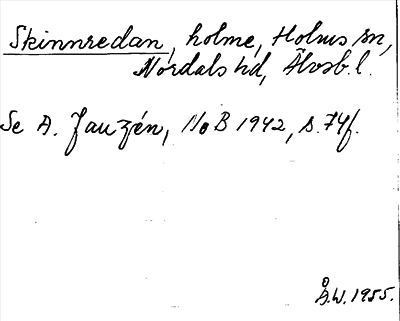 Skinnredan, holme, Holms sn,
Nordals hd, Älvsb. l.
Se A. Janzén, NoB 1942, s. 74f.
Å.W. 1955.